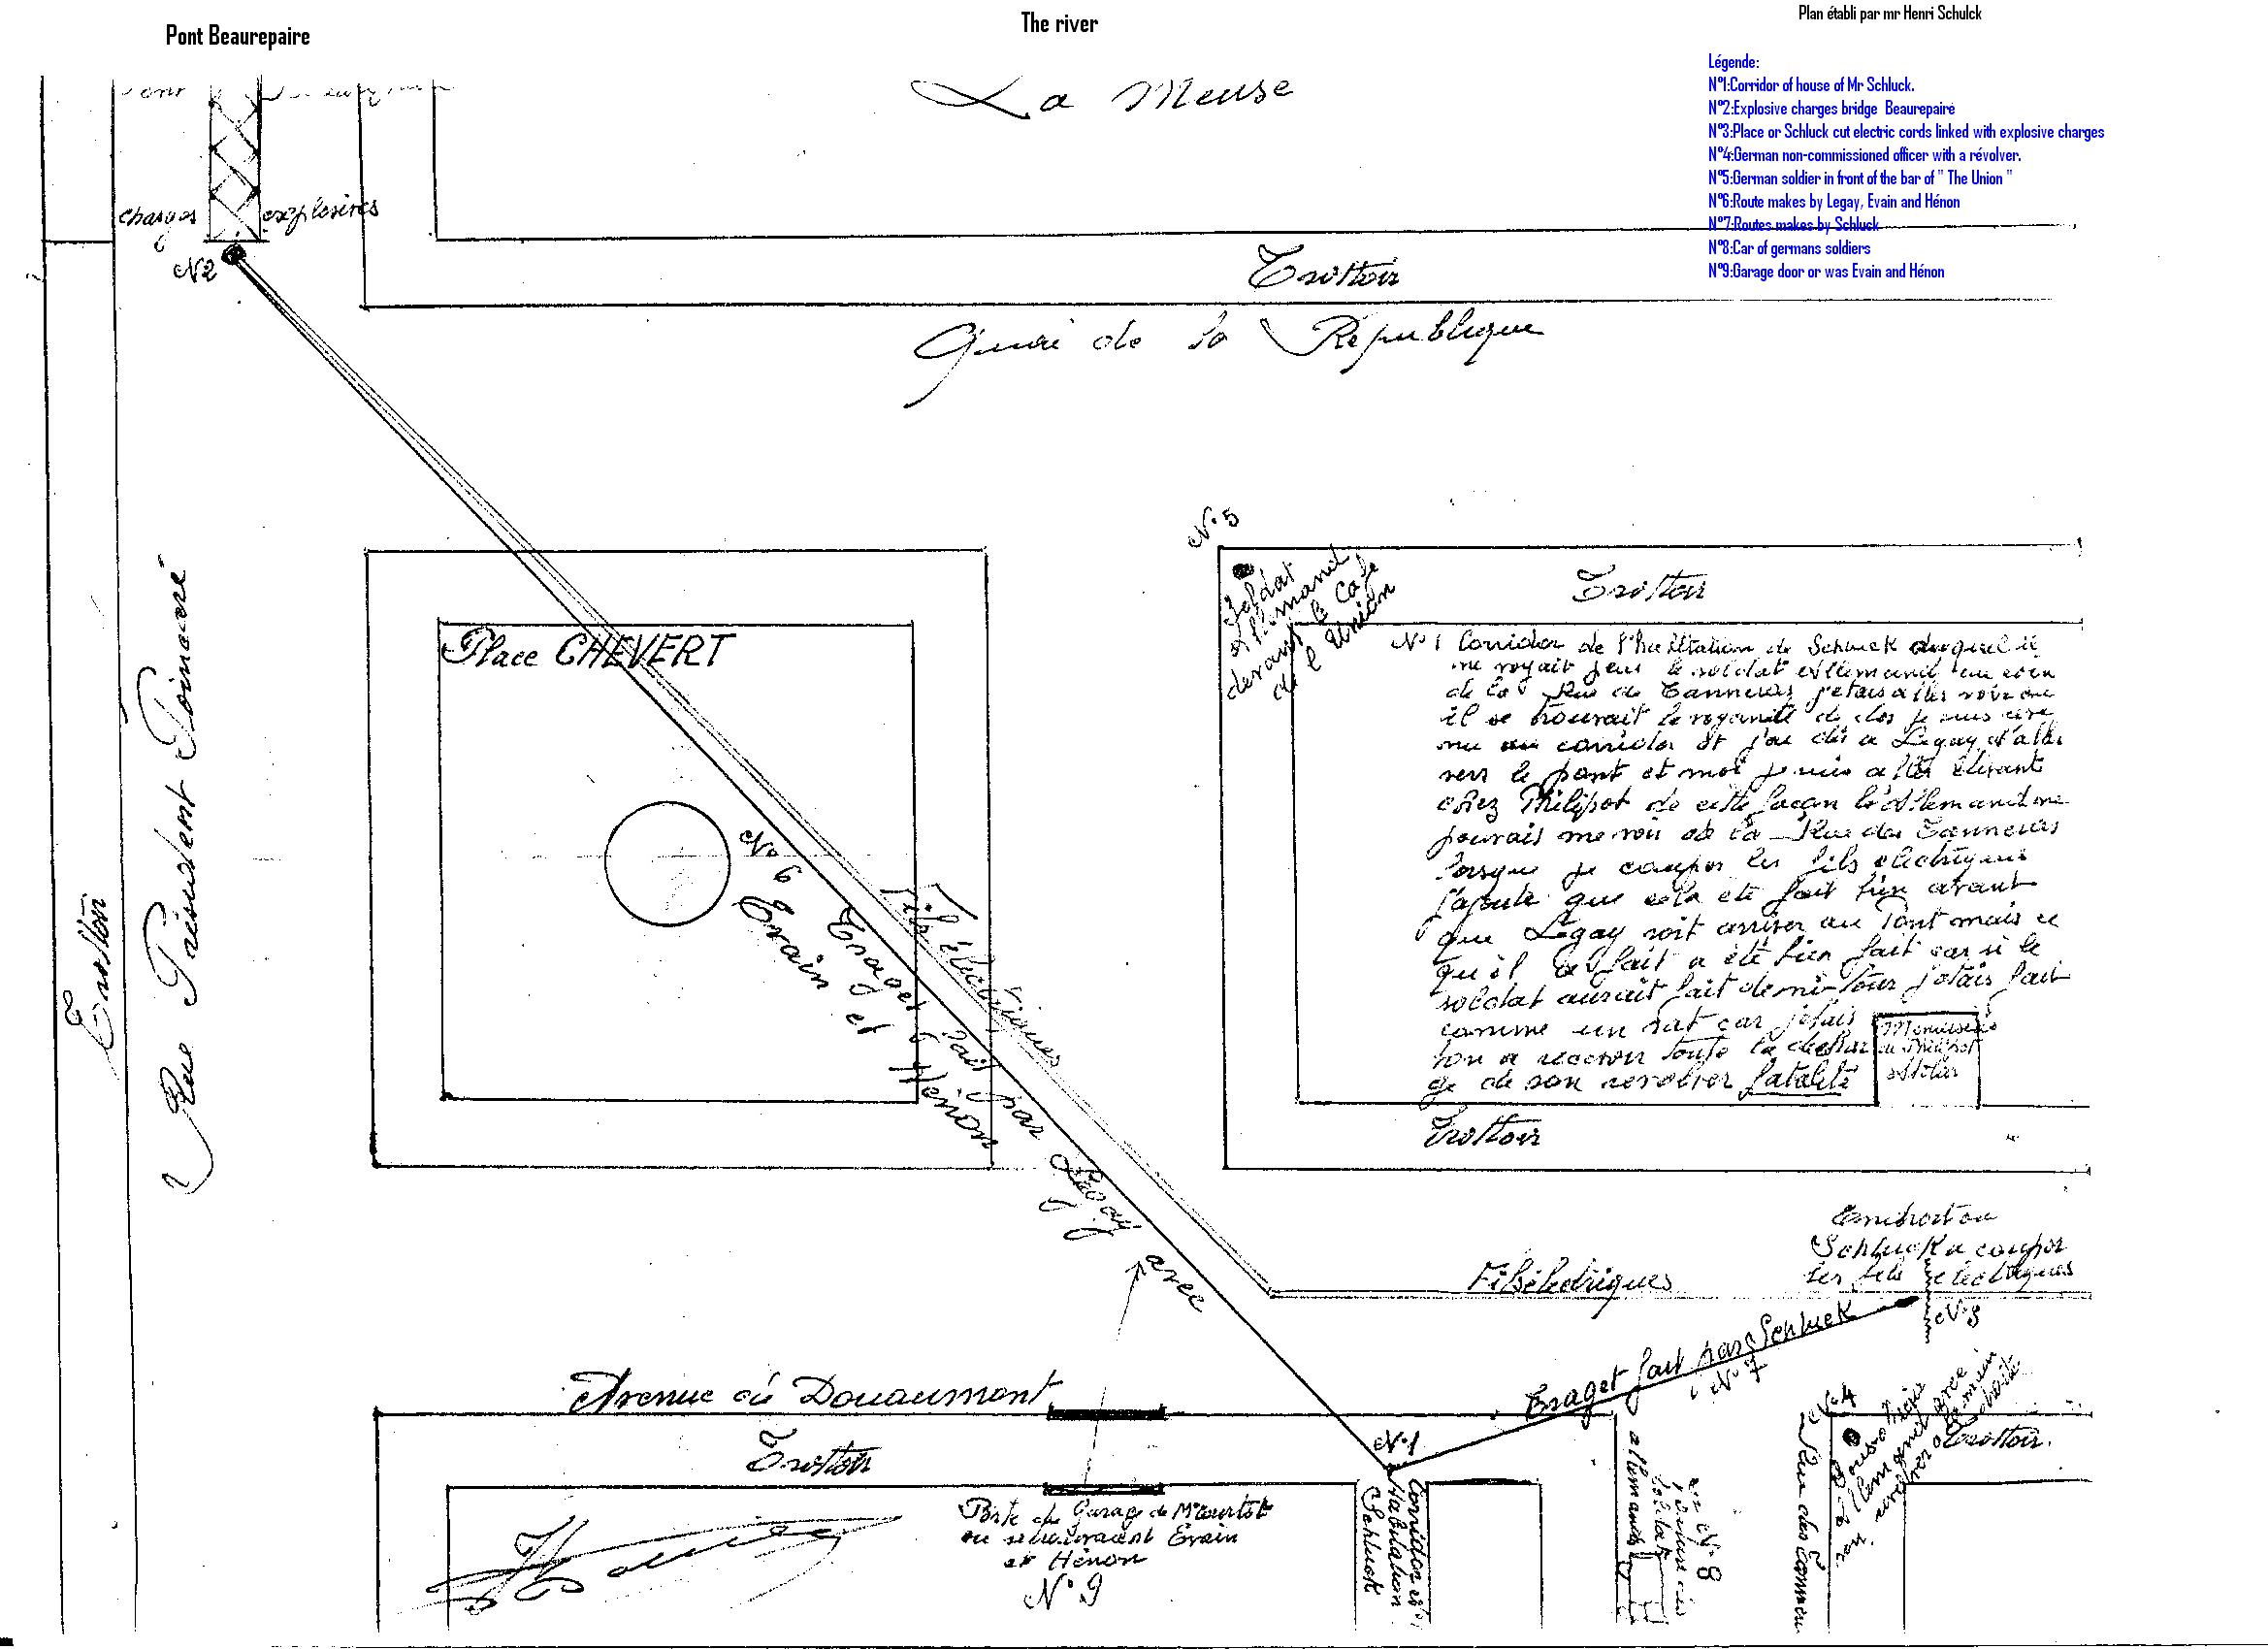 Pont Beaurepaire
The river
Plan établi par mr Henri Schulck
Légende:
N°1:Corridor of house of Mr Schluck.
N°2:Explosive charges bridge Beaurepaire
N°3:Place or Schluck cut electric cords linked with explosive charges
N°4:German non-commissioned officer with a révolver.
N°5:German soldier in front of the bar of " The Union "
N°6:Route makes by Legay, Evain and Hénon
N°7:Routes makes by Schluck
N°8:Car of germans soldiers
N°9:Garage door or was Evain and Hénon
La Meuse
charges explosives
N2
Trottoir
Quai de la République
N°5
Soldat
allemand
devant le Café
de l'Union
Trottoir
Place CHEVERT
N°1 Corridor de l'habitation de Schluck duquel il
ne voyait pas le soldat allemand au coin
de la Rue des Tanneurs j'etais aller voir ou
il se trouvait le voyant de dos je suis
au corridor et j'ai dis a Legay d'aller
vers le pont et moi je suis aller
chez Philipot de cette façon l'allemand ne
pouvais me voir de la Rue des Tanneurs
lorsque je couper les fils electriques
j'ajoute que cela été fait bien avant
que Legay soit arriver au Pont mais ce
qu'il a fait a été bien fait car si le
soldat aurait fait demi-tour j'etais fait
comme un rat car j'etais
bon a recevoir toute la déchar
ge de son revolver fatalité
Menuiserie
de Philipot
Trottoir
Rue Président Poincaré
Trottoir
N°6 Trajet fait par Legay avec
Evain et Hénon
Fils électriques
Fils électriques
Endroit ou
Schluck a couper
les fils electriques
N°3
Trajet fait par Schluck
N°7
Avenue de Douaumont
Trottoir
N°1
N°4
Sous-officier
allemand avec
revolver
Trottoir.
Porte du Garage de Mr
ou se trouvaient Evain
et Hénon
N°9
Corridor et
Habitation
Schluck
N°8
soldats
allemands
Rue des Tanneurs